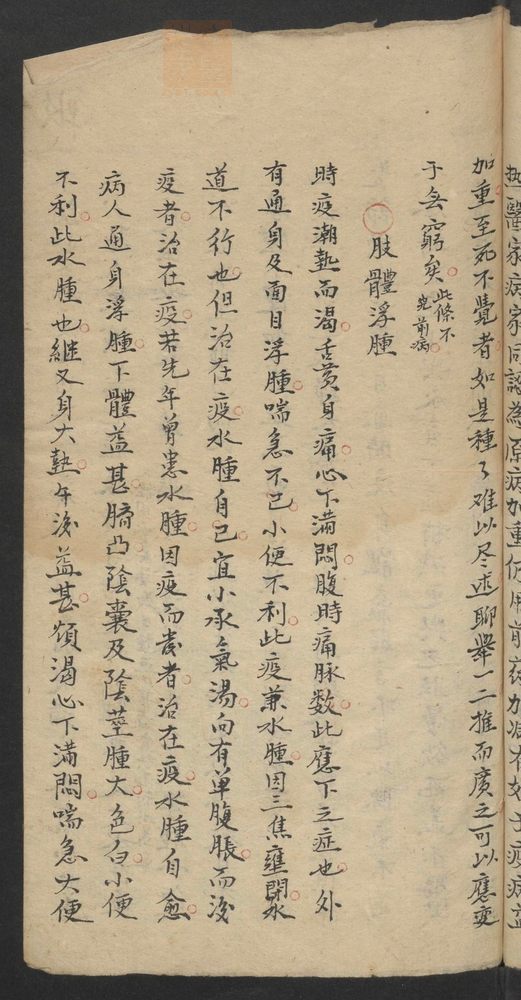 熱醫家病家同認為原病加重仍用前药加减有妨于疫病益
加重至死不覺者如是種々难以尽述聊舉一二推而廣之可以應变
于無窮矣此條不完前病
肢體浮腫
時疫潮熱而渴舌黄身痛心下滿悶腹時痛脉数此應下之症也外
有通身及面目浮腫喘急不已小便不利此疫兼水腫因三焦壅閉水
道不行也但治在疫水腫自已宜小承氣湯向有单腹脹而後
疫者治在疫若先年曾患水腫因疫而發者治在疫水腫自愈
病人通身浮腫下體益甚臍凸陰囊及陰莖腫大色白小便
不利此水腫也继又身大熱午後益甚煩渴心下滿悶喘急大便